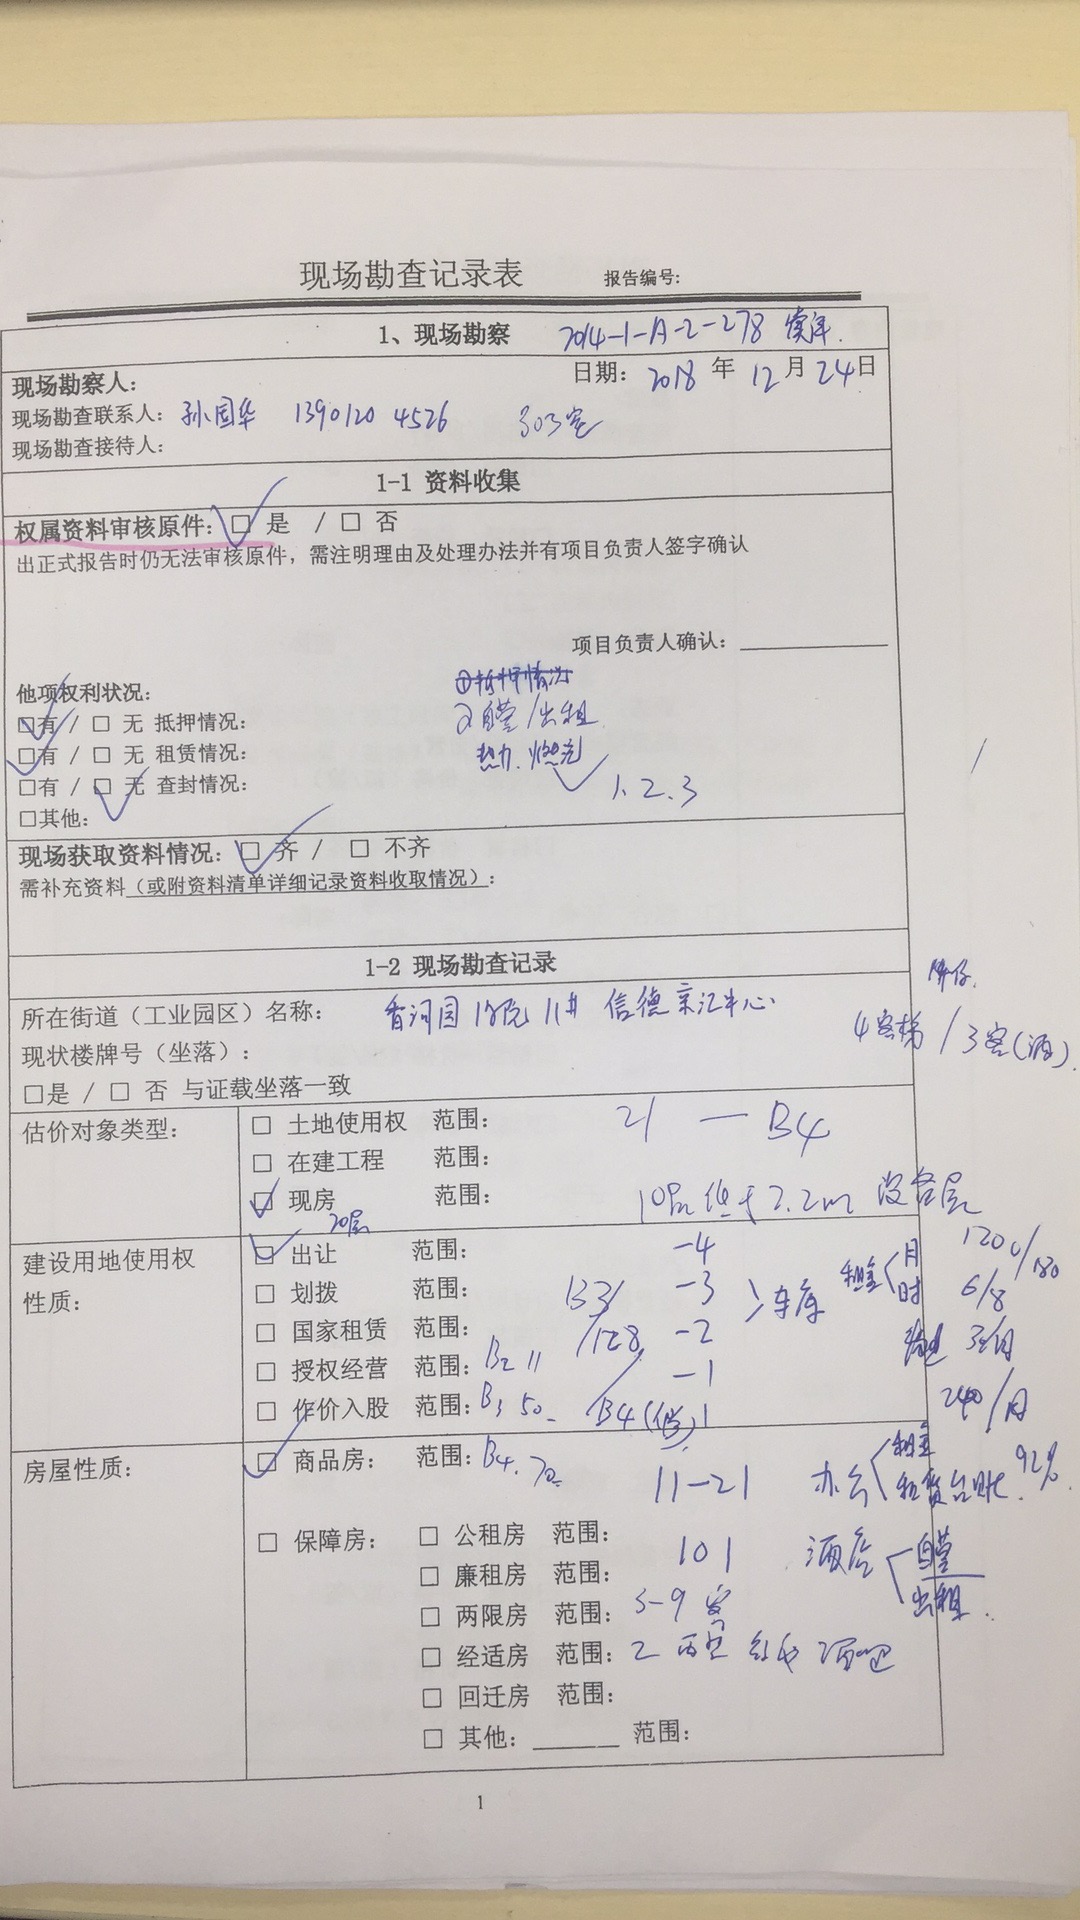 现场勘查记录表 报告编号:
1、现场勘察 2014-1-A-2-278
现场勘察人: 日期: 2018 年 12 月 24 日
现场勘查联系人: 孙国华 1390120 4526 303室
现场勘查接待人:
1-1 资料收集
权属资料审核原件: □ 是 / □ 否
出正式报告时仍无法审核原件，需注明理由及处理办法并有项目负责人签字确认
项目负责人确认:
他项权利状况: ①抵押情况
□有 / □ 无 抵押情况: 2 自营/出租
□有 / □ 无 租赁情况: 热力、燃气
□有 / □ 无 查封情况: 1、2、3
□其他:
现场获取资料情况: □ 齐 / □ 不齐
需补充资料(或附资料清单详细记录资料收取情况):
1-2 现场勘查记录
所在街道（工业园区）名称: 香河园 11# 信德京汇中心
现状楼牌号（坐落）: 4客梯/3客(酒)
□是 / □ 否 与证载坐落一致
估价对象类型: □ 土地使用权 范围: 21 — B4
□ 在建工程 范围:
□ 现房 范围: 10层低于2.2m 设备层
20层
建设用地使用权 □ 出让 范围: -4 租金 月
性质: □ 划拨 范围: -3 车库 时 6/8
□ 国家租赁 范围: -2
□ 授权经营 范围: B2 11 -1
□ 作价入股 范围: B3 50 240/月
房屋性质: □ 商品房: 范围: B4. 70 11-21 办公 租金
租赁台账 92%
□ 保障房: □ 公租房 范围: 101 酒店 自营
□ 廉租房 范围: 出租
□ 两限房 范围: 5-9 客
□ 经适房 范围: 2 酒吧
□ 回迁房 范围:
□ 其他: 范围:
1